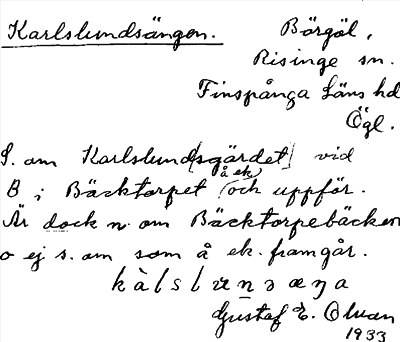 Karlslundsängen. Börgöl,
Risinge sn.
Finspånga Läns hd
Ögl.
S. om Karlslund[sgärdet] vid
B i Bäcktorpet (å ek.) och uppför.
Är dock n. om Bäcktorpebäcken
o ej s. om som å ek. framgår.
Gustaf E. Olman
1933